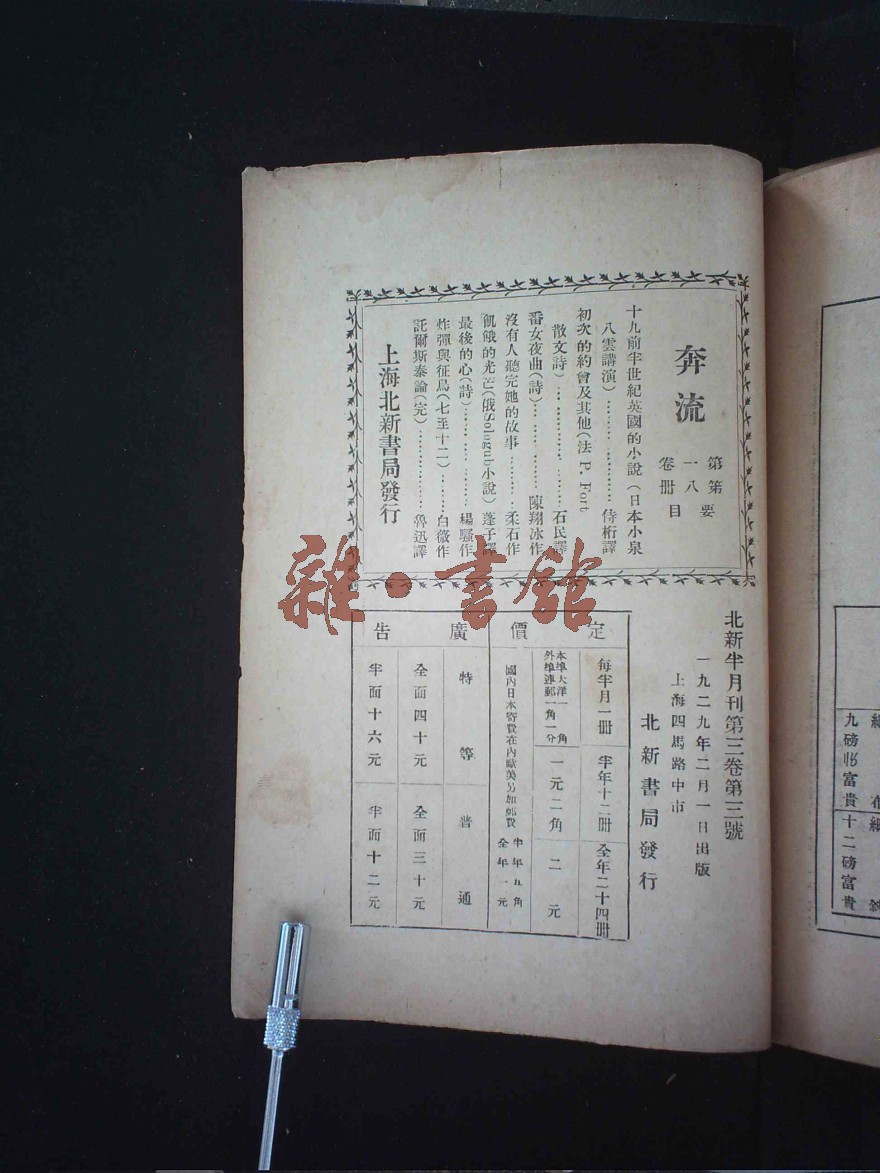 奔流
第一卷
第八冊
要目
十九前半世紀英國的小說(日本小泉
八雲講演)……………侍桁譯
初次的約會及其他(法 P. Fort
散文詩)……………石民譯
番女夜曲(詩)……………陳翔冰作
沒有人聽完她的故事………柔石作
飢餓的光芒(俄Sologub小說)蓬子譯
最後的心(詩)……………楊騷作
炸彈與征鳥(七至十二)……白薇作
託爾斯泰論(完)……………魯迅譯
上海北新書局發行
北新半月刊第三卷第三號
一九二九年二月一日出版
上海四馬路中市
北新書局發行
定價
每半月一冊
半年十二冊
全年二十四冊
本埠大洋一角
外埠連郵一角一分
一元二角
二元
國內日本寄費在內歐美另加郵費
半年五角
全年一元
廣告
特等
普通
全面四十元
全面三十元
半面十六元
半面十二元
九磅
富貴
十二磅富貴
雜·書館